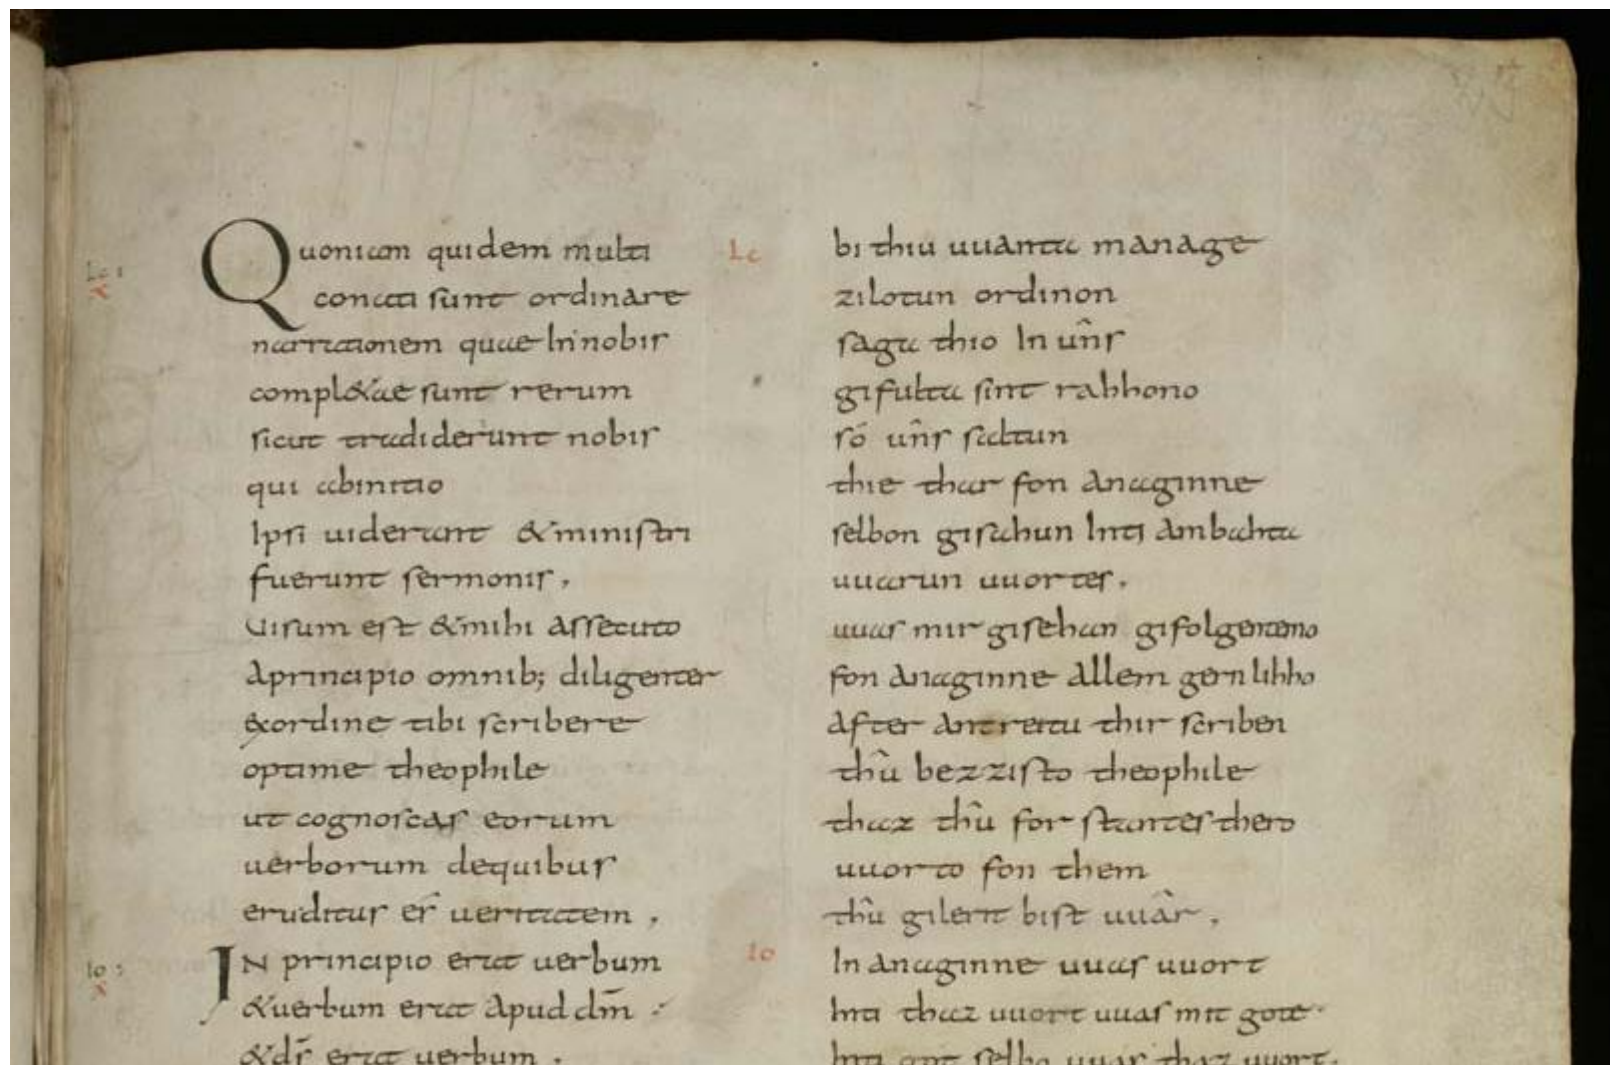 Lc 1
X
Quoniam quidem multi
conati sunt ordinare
narrationem quae In nobis
compl&ae sunt rerum
sicut tradiderunt nobis
qui abinitio
Ipsi uiderunt &ministri
fuerunt sermonis,
Uisum est &mihi assecuto
aprincipio omnib; diligenter
exordine tibi scribere
optime theophile
ut cognoscas eorum
uerborum dequibus
eruditus es̄ ueritatem,
Io 1
X
IN principio erat uerbum
&uerbum erat apud dm̄ ·
&ds̄ erat uerbum ·
Lc
bi thiu uuanta manage
zilotun ordinon
saga thio In ûns
gifulta sint rahhono
só ûns saltun
thie thar fon anaginne
selbon gisahun Inti ambahta
uuarun uuortes,
uuas mir gisehan gifolgentemo
fon anaginne allem gernlihho
after antreitu thir scriben
thû bezzisto theophile
thaz thû forstantes thero
uuorto fon them
thû gilerit bist uuâr,
In anaginne uuas uuort
Inti thaz uuort uuas mit gote·
Inti got selbo uuas thaz uuort·